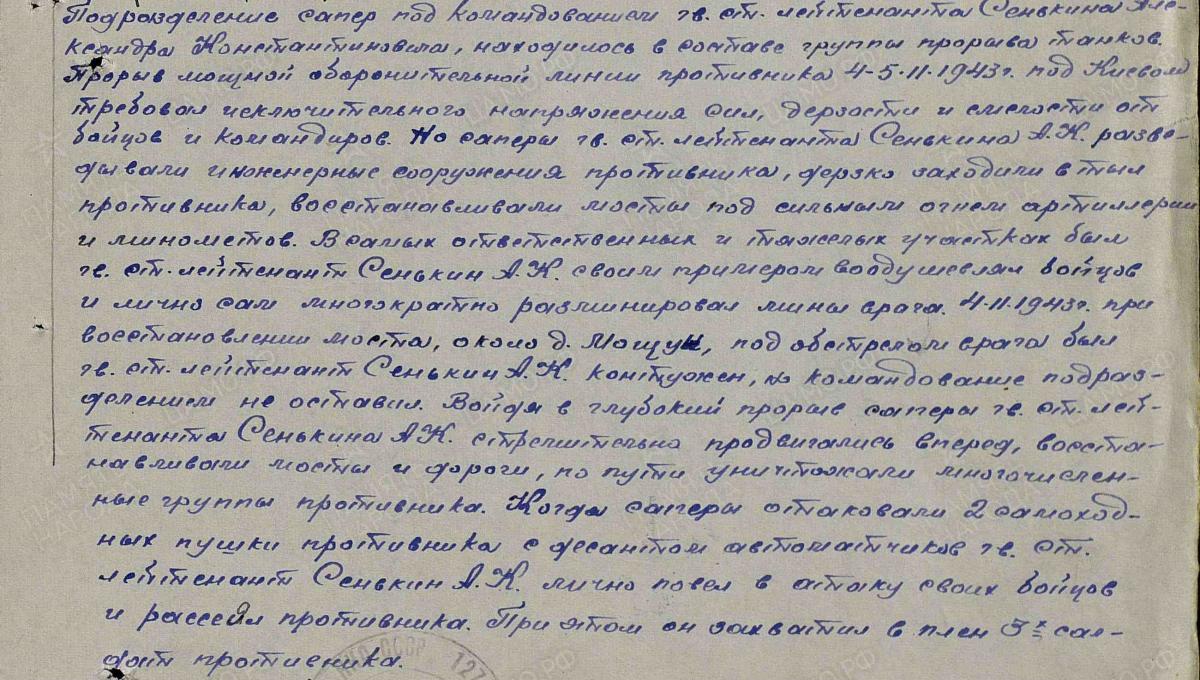 Подразделение сапер под командованием гв. ст. лейтенанта Сенькина Але-
ксандра Константиновича, находилось в составе группы прорыва танков.
Прорыв мощной оборонительной линии противника 4-5.11.1943г. под Киевом
требовал исключительного напряжения сил, дерзости и смелости от
бойцов и командиров. Но саперы гв. ст. лейтенанта Сенькина А.К. разве-
дывали инженерные сооружения противника, дерзко заходили в тыл
противника, восстанавливали мосты под сильным огнем артиллерии
и минометов. В самых ответственных и тяжелых участках был
гв. ст. лейтенант Сенькин А.К. своим примером воодушевлял бойцов
и лично сам многократно разминировал мины врага. 4.11.1943г. при
восстановлении моста, около д. Мощун, под обстрелом врага был
гв. ст. лейтенант Сенькин А.К. контужен, но командование подраз-
делением не оставил. Войдя в глубокий прорыв саперы гв. ст. лей-
тенанта Сенькина А.К. стремительно продвигались вперед, восста-
навливали мосты и дороги, по пути уничтожали многочислен-
ные группы противника. Когда саперы атаковали 2 самоход-
ных пушки противника с десантом автоматчиков гв. ст.
лейтенант Сенькин А.К. лично повел в атаку своих бойцов
и рассеял противника. При этом он захватил в плен 3х сол-
дат противника.